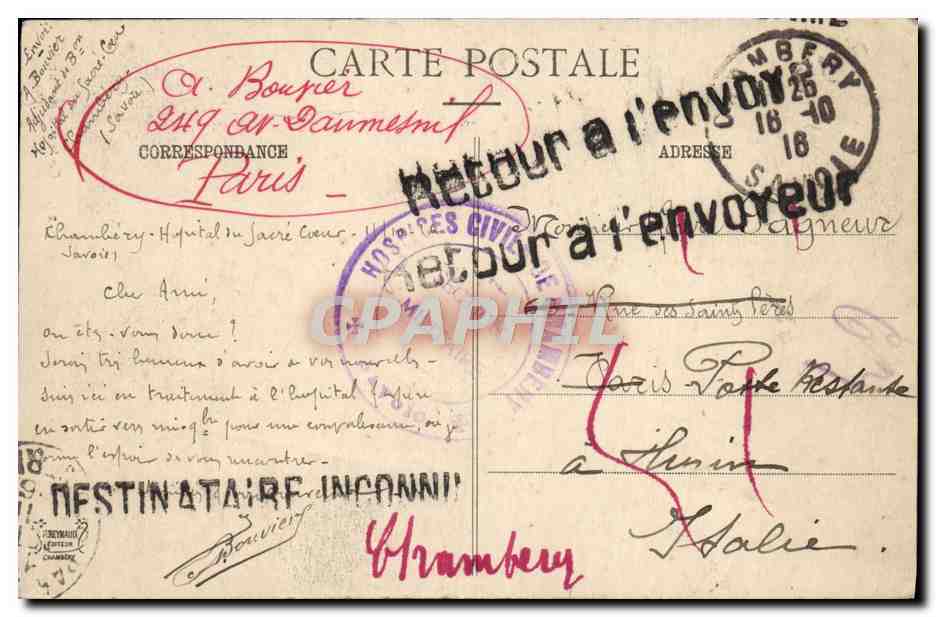 Envoi:
A. Bouvier
Adjudant de Bon
Hopital du Sacré-Cœur
Chambéry
(Savoie)
CARTE POSTALE
A. Bouvier
249 av. Daumesnil
Paris
CORRESPONDANCE
ADRESSE
CHAMBERY
16-10
16
SAVOIE
Retour a l'envoyeur
Retour a l'envoyeur
HOSPICES CIVILS DE CHAMBERY
CPAPHIL
Monsieur Seigneur
Rue des Saints Pères
Paris Poste Restante
à Turin
Italie.
Chambéry - Hopital du Sacré Cœur -
Savoie
Cher Ami,
où êtes-vous donc ?
Serai très heureux d'avoir de vos nouvelles
Suis ici en traitement à l'hopital j'espère
en sortir vers pour une convalescence, où je
l'espoir de vous rencontrer -
DESTINATAIRE INCONNU
Bouvier
Chambery
REYNAUD
EDITEUR
CHAMBERY